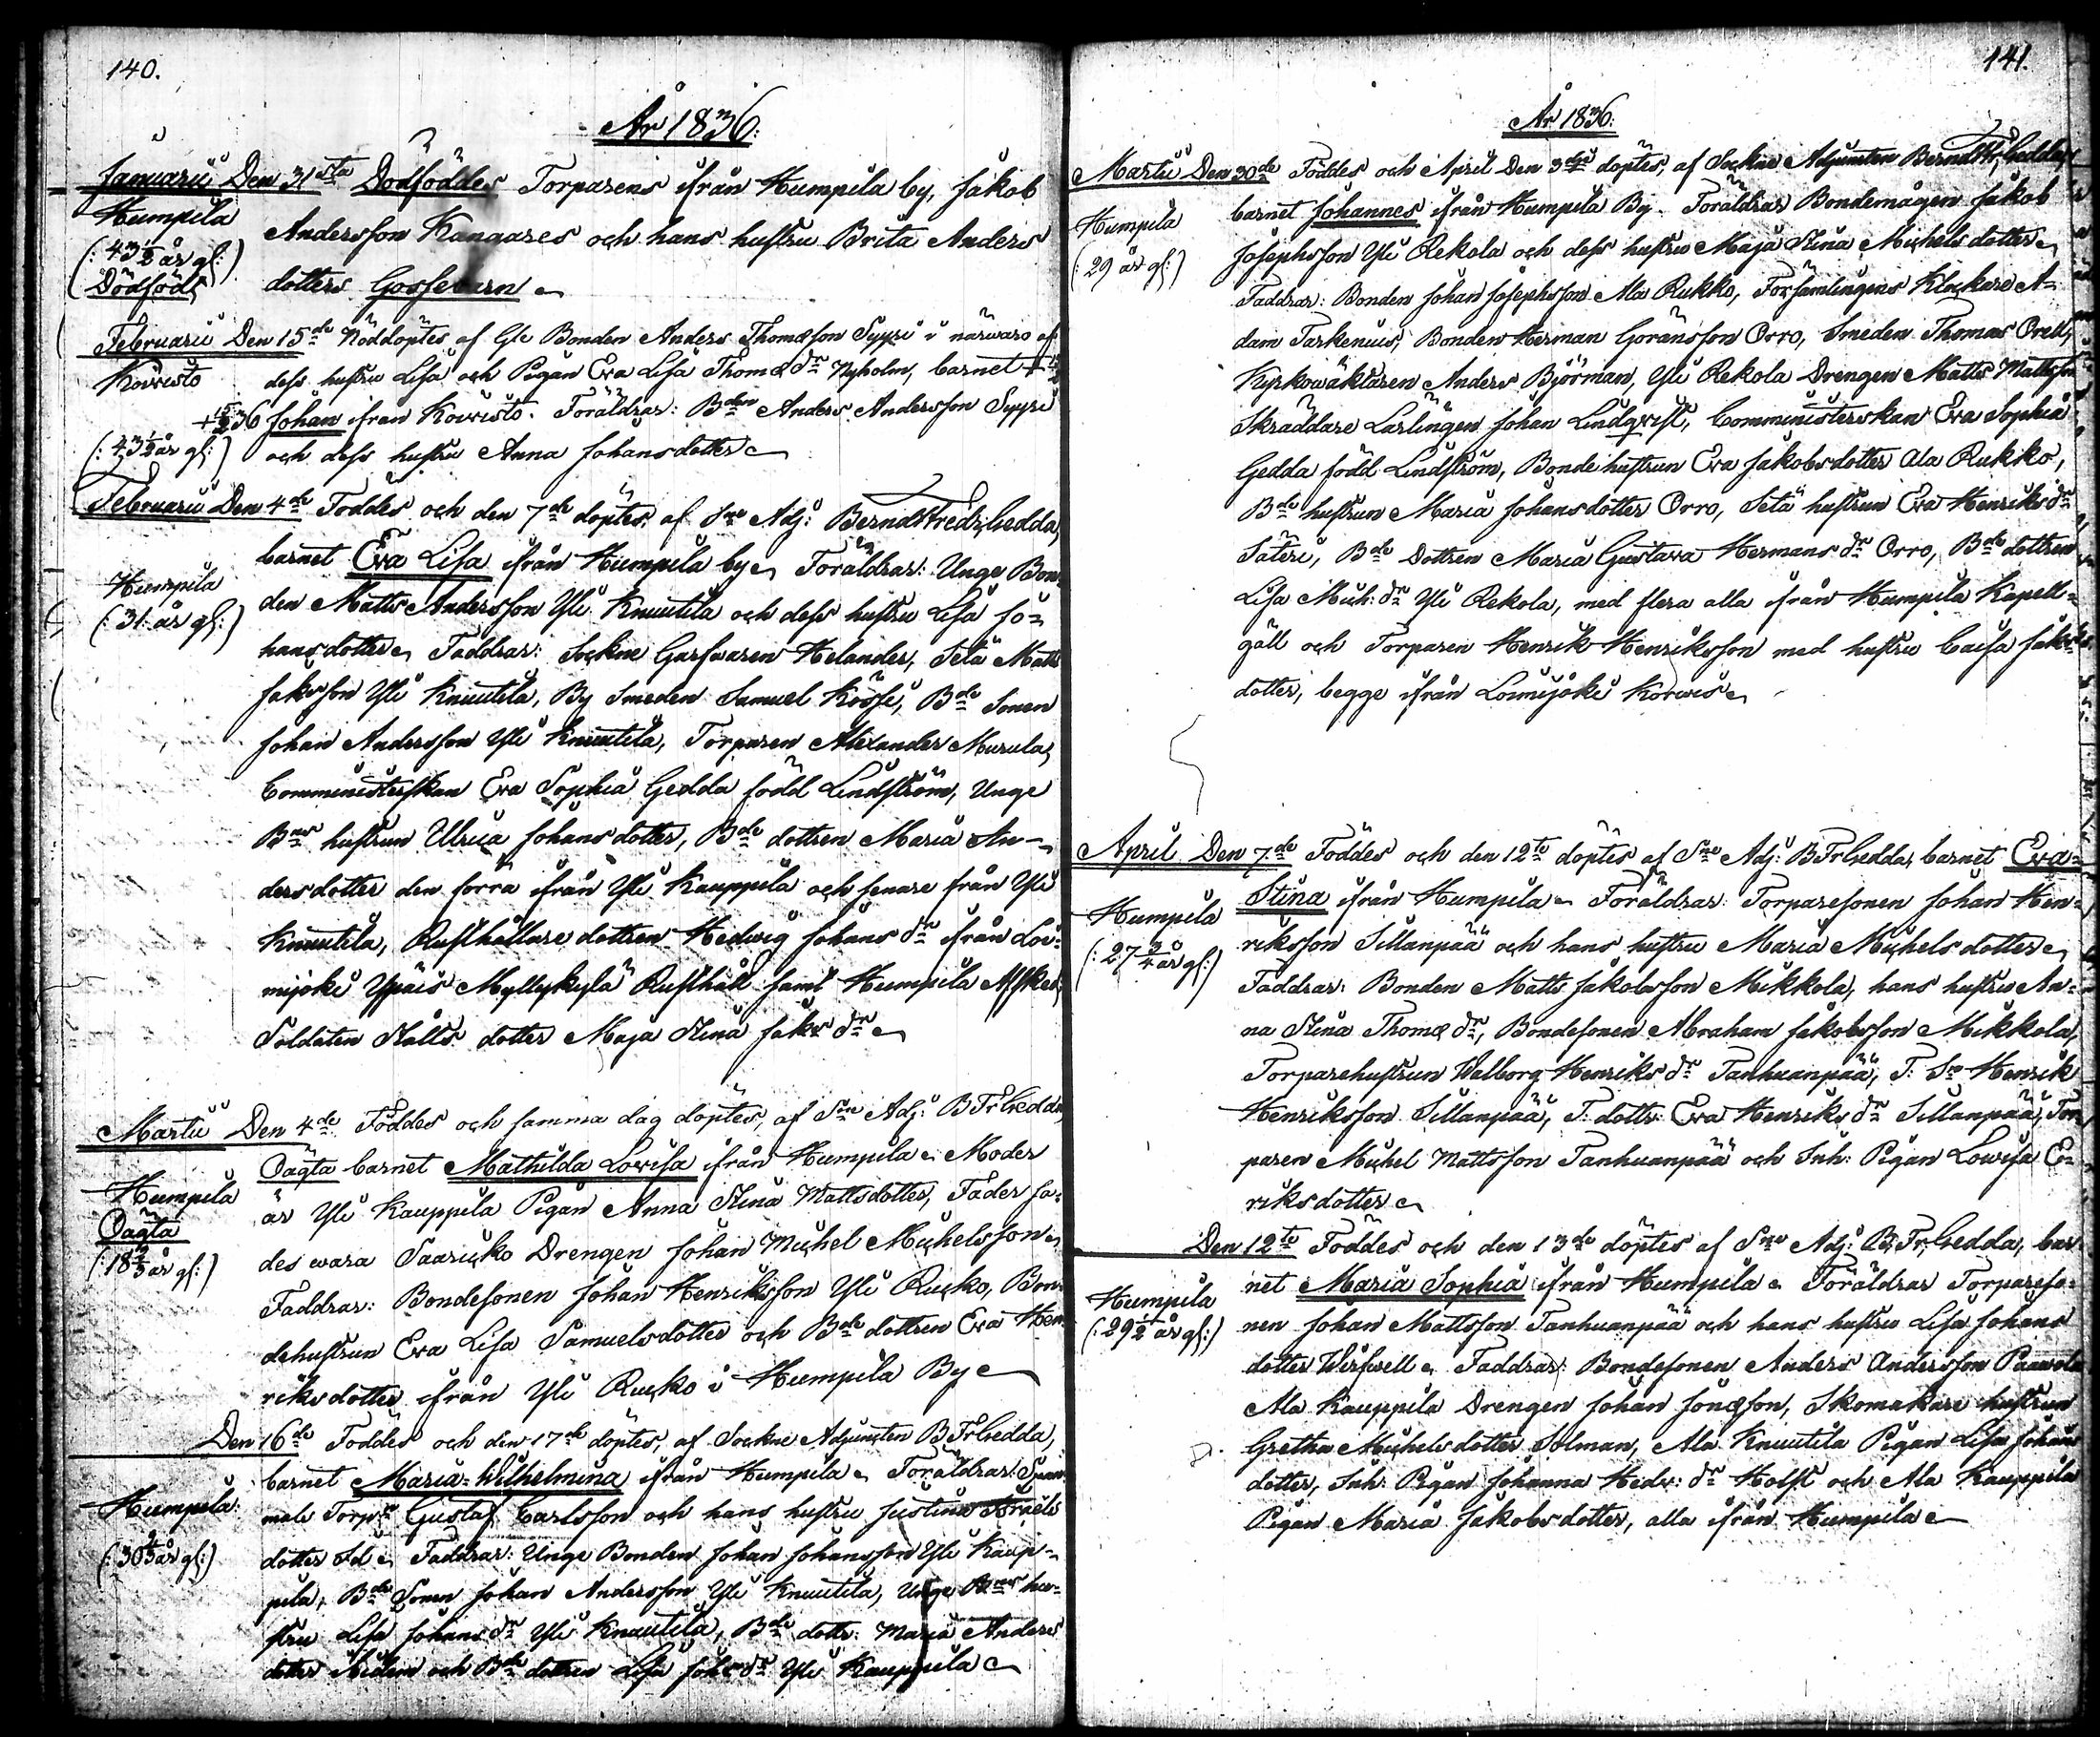 140.
År 1836.
Januarii Den 31sta Dödföddes Torparens ifrån Humpila by, Jakob
Humpila
Andersson Kangares och hans hustru Brita Anders
(: 43 1/2 år gl:)
Dödfödt
dotters Gossebarn
Februarii Den 15de Nöddöptes af Gle Bonden Anders Thomæson Syyri i närwaro af
Koiwisto
dess hustru Lisa och Pigan Eva Lisa Thomæ dr Nyholm, barnet
Johan ifrån Koiwisto. Föräldrar: Bden Anders Andersson Syyri
(: 43 1/2 år gl:)
och dess hustru Anna Johansdotter
Februarii Den 4de Föddes och den 7de döptes af Sne Adj: Berndt Fredr. Gedda,
barnet Eva Lisa ifrån Humpila by. Föräldrar: Unge Bon-
Humpila
(: 31 år gl:)
den Matts Andersson Yli Knuutila och dess hustru Lisa Jo-
hansdotter. Faddrar: Sockne Garfwaren Helander, Sytä Matts
Jakosson Yli Knuutila, By Smeden Samuel Köösi, Bde Sonen
Johan Andersson Yli Knuutila, Torparen Alexander Murula,
Comministerskan Eva Sophia Gedda född Lindström, Unge
Bns hustrun Ulrica Johansdotter, Bde dottren Maria An-
dersdotter den förra ifrån Yli Kauppila och senare från Yli
Knuutila, Rusthållare dottren Hedwig Johans dr ifrån Loi-
mijoki Ypäis Myllykylä Rusthåll samt Humpila Afsked,
Soldaten Stålts dotter Maja Stina Jaks dr
Martii Den 4de Föddes och samma dag döptes, af Sne Adj: B Fr Gedda,
Oägta barnet Mathilda Lowisa ifrån Humpila. Moder
Humpila
Oägta
(: 18 2/3 år gl:)
är Yli Kauppila Pigan Anna Stina Mattsdotter, Fader sa-
des wara Saaricko Drengen Johan Michel Michelsson.
Faddrar: Bondesonen Johan Henriksson Yli Rucko, Bon-
dehustrun Eva Lisa Samuelsdotter och Bde dottren Eva Hen-
riksdotter ifrån Yli Rucko i Humpila By
Den 16de Föddes och den 17de döptes, af Sockne Adjuncten B Fr Gedda,
barnet Maria=Wilhelmina ifrån Humpila. Föräldrar:
Humpila
male Torpr Gustaf Carlsson och hans hustru Justina Israels
dotter Faddrar: Unge Bonden Johan Johansson Yli Kaup-
pila, Bde Sonen Johan Andersson Yli Knuutila, Unge Bns hu-
stru Lisa Johans dr Yli Knuutila, Bde dottr: Maria Anders
dotter och Bde dottren Lisa Johs dr Yli Kauppila
141.
År 1836.
Martii Den 30de Föddes och April Den 3dje döptes, af Sockne Adjuncten Berndt Fr. Gedda,
barnet Johannes ifrån Humpila By. Föräldrar Bondemågen Jakob
Humpila
(: 29 år gl:)
Josephsson Yli Rekola och dess hustru Maja Stina Michelsdotter
Faddrar: Bonden Johan Josephsson Ala Rukko, Församlingens Klockare A-
dam Tarkenius, Bonden Herman Göransson Orro, Smeden Thomas Orell,
Kyrkowäktaren Anders Björman, Yli Rekola Drengen Matts Mattsson
Skräddare Lärlingen Johan Lindqvist, Comministerskan Eva Sophia
Gedda född Lindström, Bonde hustrun Eva Jakobsdotter Ala Rukko,
Bde hustrun Maria Johansdotter Orro, Sytä hustrun Eva Henriks dr
Säteri, Bde Dottren Maria Gustava Hermans dr Orro, Bde dottren
Lisa Mich: dr Yli Rekola, med flera alla ifrån Humpila Kapell-
gäll och Torparen Henrik Henriksson med hustru Caisa Jakobs
dotter, begge ifrån Loimijoki Korwis
April Den 7de Föddes och den 12te döptes af Sne Adj: B Fr Gedda, barnet Eva-
Stina ifrån Humpila. Föräldrar: Torparesonen Johan Hen-
Humpila
(: 27 3/4 år gl:)
riksson Sillanpää och hans hustru Maria Michelsdotter
Faddrar: Bonden Matts Jakobsson Mikkola, hans hustru An-
na Stina Thomæ dr, Bondesonen Abraham Jakobsson Mikkola,
Torparehustrun Walborg Henriks dr Tanhuanpää, T: So Henrik
Henriksson Sillanpää, T: dottr: Eva Henriks dr Sillanpää, Tor-
paren Michel Mattsson Tanhuanpää och Inh: Pigan Lowisa E-
riksdotter
Den 12te Föddes och den 13de döptes af Sne Adj: B. Fr. Gedda, bar
net Maria Sophia ifrån Humpila. Föräldrar Torpareso-
Humpila
(: 29 1/2 år gl:)
nen Johan Mattsson Tanhuanpää och hans hustru Lisa Johans
dotter Wirfwell. Faddrar: Bondesonen Anders Andersson Paawola
Ala Kauppila Drengen Johan Jonæson, Skomakare hustrun
Gretha Michelsdotter Solman, Ala Knuutila Pigan Lisa Johans
dotter, Inh: Pigan Johanna Hedv: dr Holst och Ala Kauppila
Pigan Maria Jakobsdotter, alla ifrån Humpila